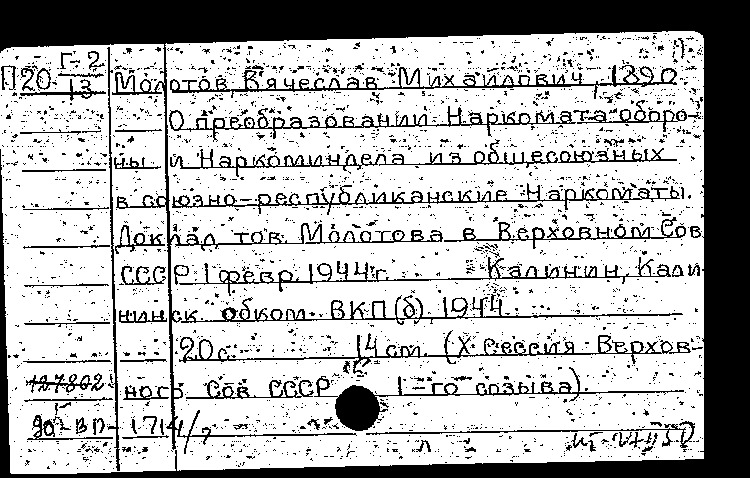 Г-2
П20 13 Молотов, Вячеслав Михайлович, 1890
О преобразовании Наркомата оборо-
ны и Наркоминдела из общесоюзных
в союзно-республиканские Наркоматы.
Доклад тов. Молотова в Верховном Сов
СССР 1 февр. 1944 г. Калинин, Кали-
нинск. обком ВКП(б), 1944.
20 с. 14 см. (X Сессия Верхов-
127802 ного Сов СССР 1-го созыва).